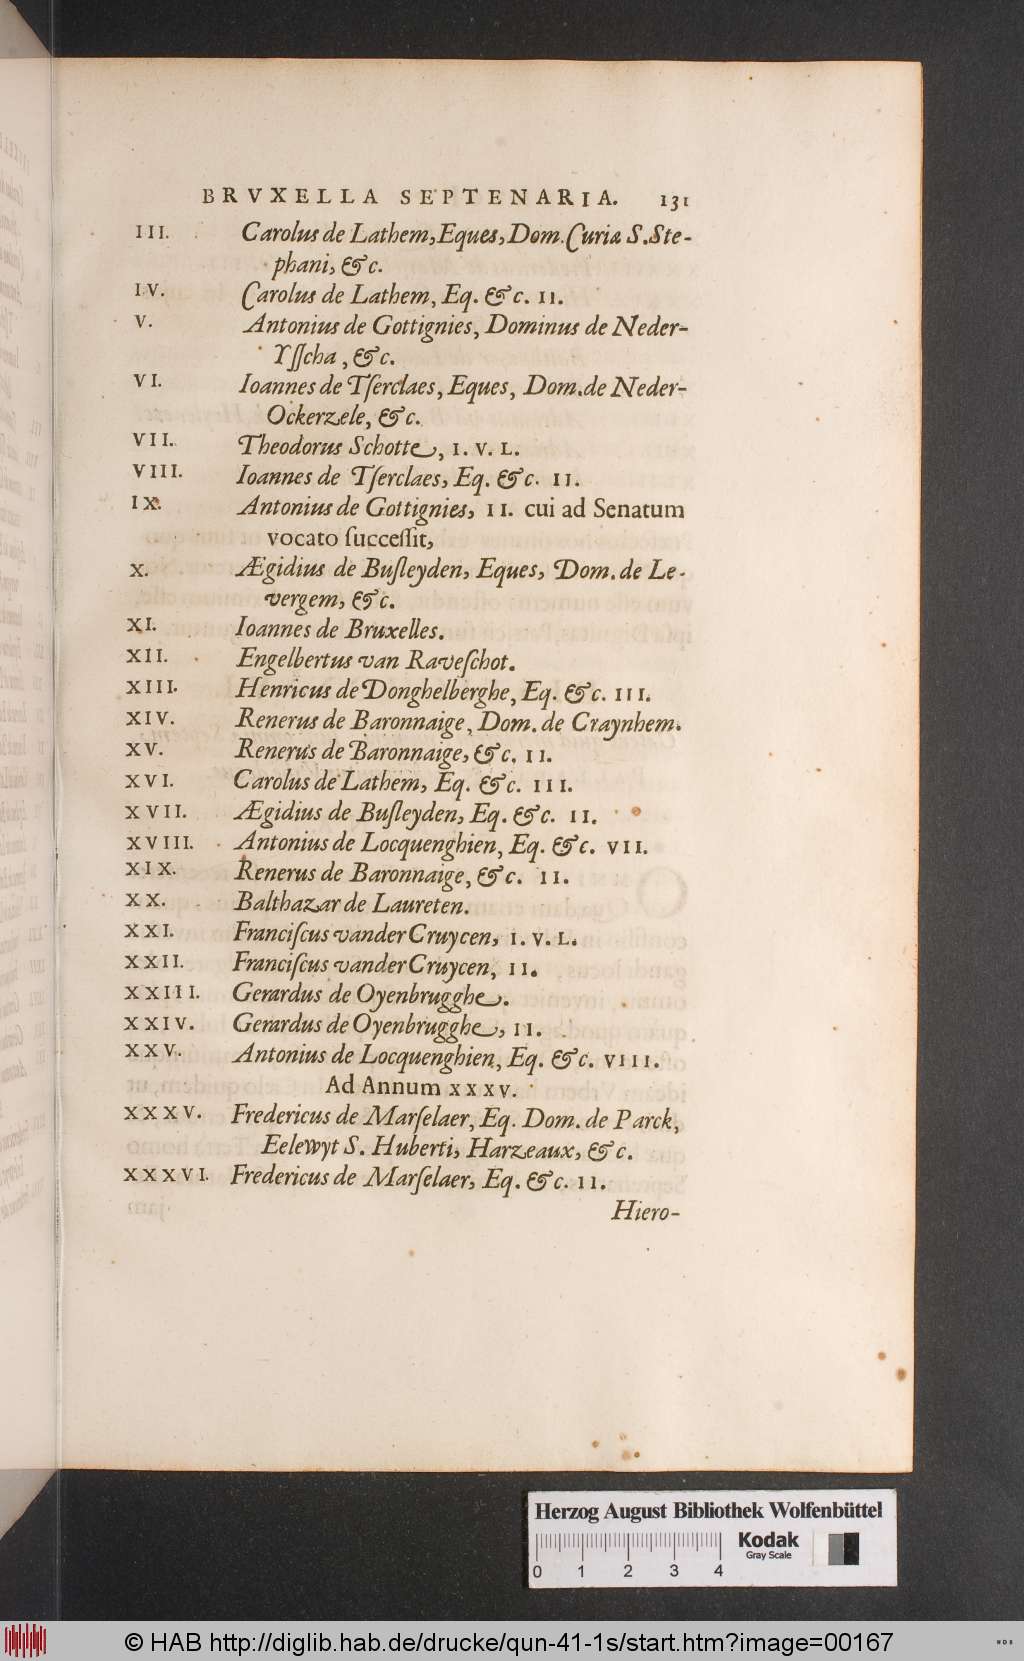 BRVXELLA SEPTENARIA. 131
III. Carolus de Lathem, Eques, Dom. Curiæ S. Ste-
phani, &c.
IV. Carolus de Lathem, Eq. &c. II.
V. Antonius de Gottignies, Dominus de Neder-
Yſſcha, &c.
VI. Ioannes de Tſerclaes, Eques, Dom. de Neder-
Ockerzele, &c.
VII. Theodorus Schotte, I. V. L.
VIII. Ioannes de Tſerclaes, Eq. &c. II.
IX. Antonius de Gottignies, II. cui ad Senatum
vocato ſucceſſit,
X. Ægidius de Buſleyden, Eques, Dom. de Le-
vergem, &c.
XI. Ioannes de Bruxelles.
XII. Engelbertus van Raveſchot.
XIII. Henricus de Donghelberghe, Eq. &c. III.
XIV. Renerus de Baronnaige, Dom. de Craynhem.
XV. Renerus de Baronnaige, &c. II.
XVI. Carolus de Lathem, Eq. &c. III.
XVII. Ægidius de Buſleyden, Eq. &c. II.
XVIII. Antonius de Locquenghien, Eq. &c. VII.
XIX. Renerus de Baronnaige, &c. II.
XX. Balthazar de Laureten.
XXI. Franciſcus vander Cruycen, I. V. L.
XXII. Franciſcus vander Cruycen, II.
XXIII. Gerardus de Oyenbrugghe.
XXIV. Gerardus de Oyenbrugghe, II.
XXV. Antonius de Locquenghien, Eq. &c. VIII.
Ad Annum XXXV.
XXXV. Fredericus de Marſelaer, Eq. Dom. de Parck,
Eelewyt S. Huberti, Harzeaux, &c.
XXXVI. Fredericus de Marſelaer, Eq. &c. II.
Hiero-
Herzog August Bibliothek Wolfenbüttel
Kodak
Gray Scale
0 1 2 3 4
© HAB http://diglib.hab.de/drucke/qun-41-1s/start.htm?image=00167